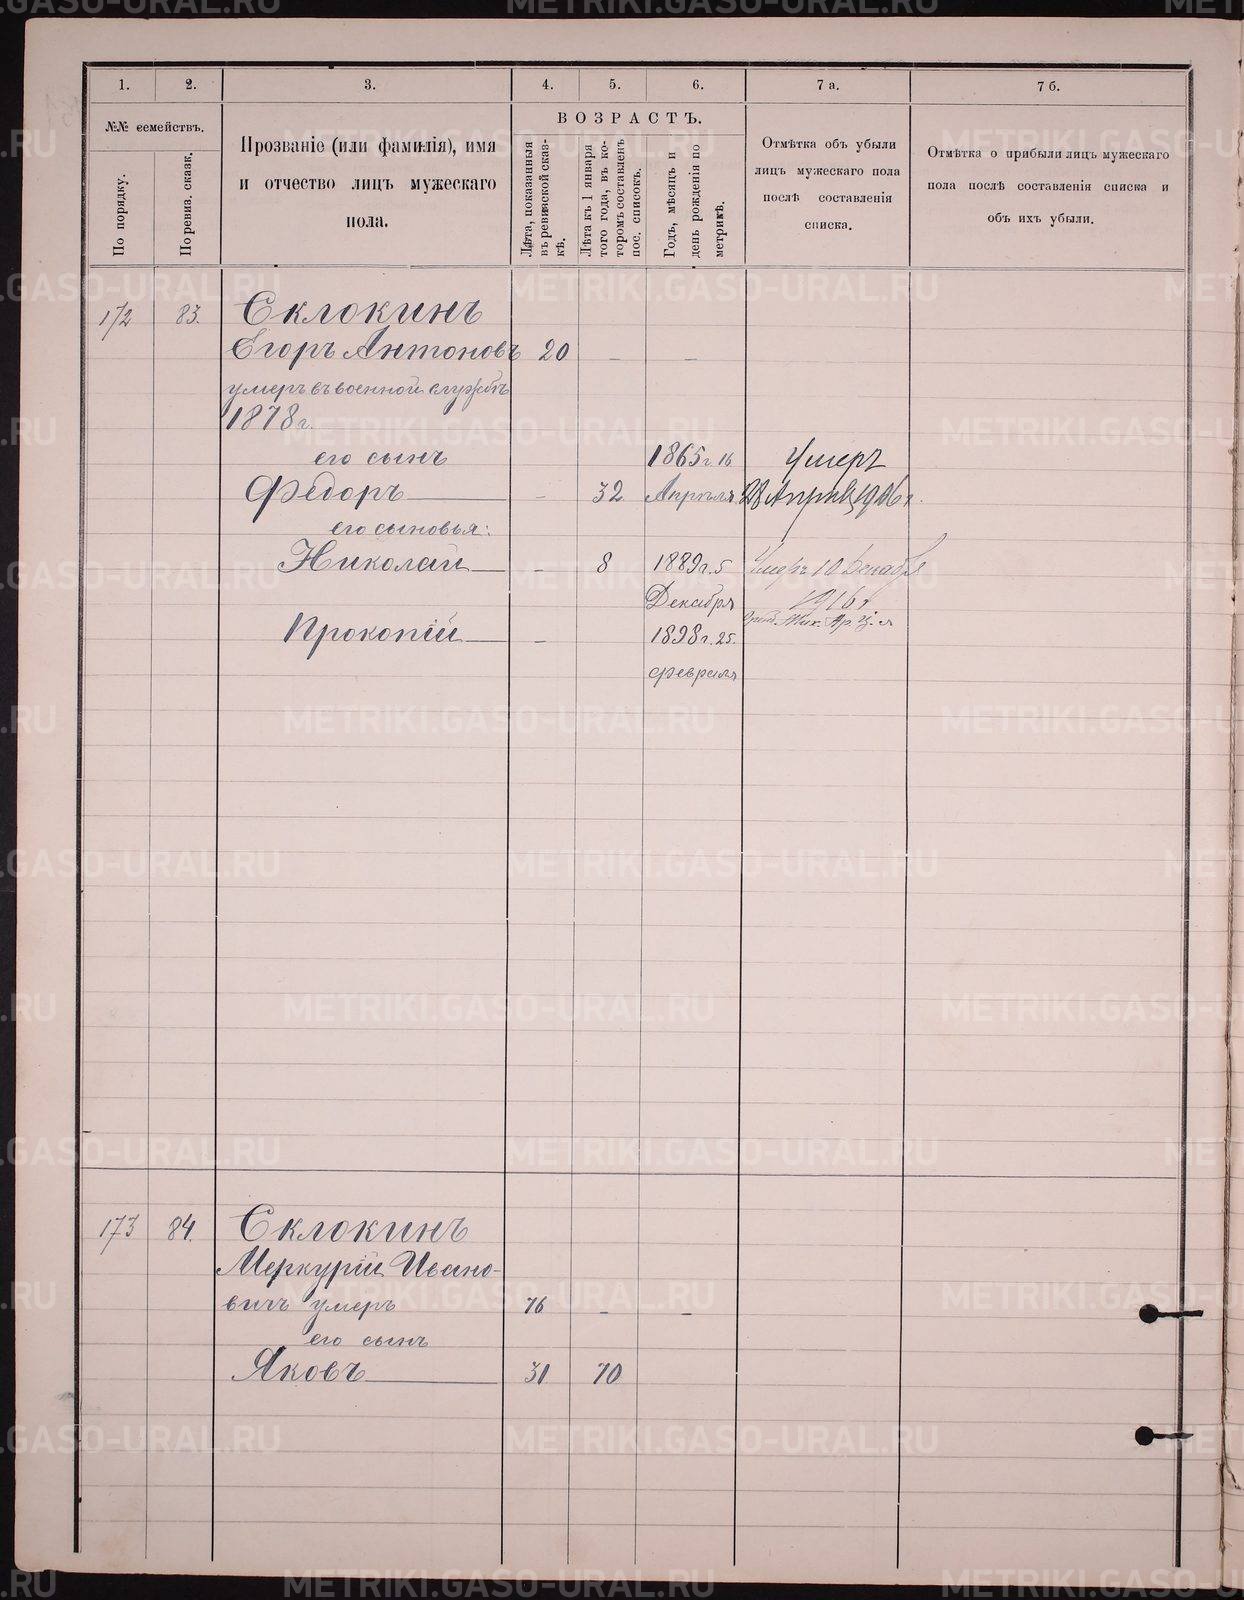 1.
2.
3.
4.
5.
6.
7 а.
7 б.
№№ семействъ.
По порядку.
По ревиз. сказк.
Прозваніе (или фамилія), имя
и отчество лицъ мужескаго
пола.
ВОЗРАСТЪ.
Лѣта, показанныя
въ ревизской сказ-
кѣ.
Лѣта къ 1 января
того года, въ ко-
торомъ составленъ
пос. списокъ.
Годъ, мѣсяцъ и
день рожденія по
метрикѣ.
Отмѣтка объ убыли
лицъ мужескаго пола
послѣ составленія
списка.
Отмѣтка о прибыли лицъ мужескаго
пола послѣ составленія списка и
объ ихъ убыли.
172 83. Склокинъ
Егоръ Антоновъ 20 – –
умеръ въ военной службѣ
1878 г.
его сынъ 1865 г. 16 Умеръ
Федоръ – 32 Апрѣля 28 Апрѣля 1906 г.
его сыновья:
Николай – 8 1889 г. 5 Умеръ 10 Декабря
Декабря 1916 г
Прокопій – 1898 г. 25.
февраля
173 84. Склокинъ
Меркурій Ивано-
вичъ умеръ 76 – –
его сынъ
Яковъ 31 70
METRIKI.GASO-URAL.RU